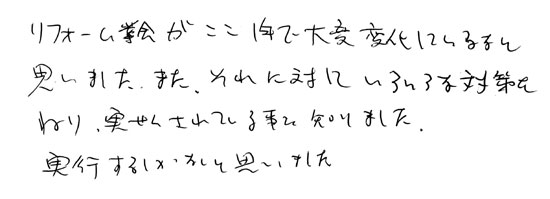 リフォーム業会がここ1年で大変変化しているなと
思いました.また、それに対していろいろな対策を
ねり、実せんされている事を知りました.
実行するしかないと思いました